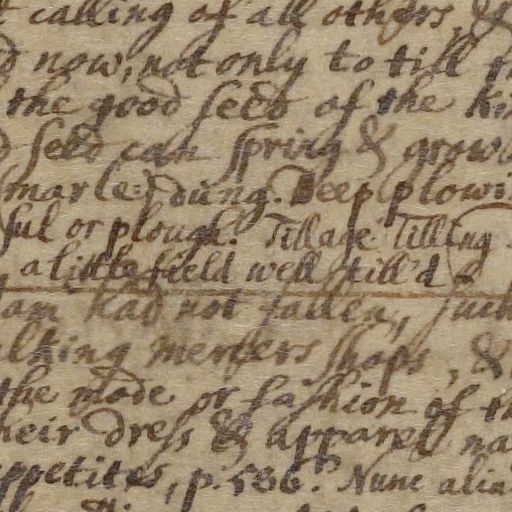 calling of all others, &
now, not only to till th
the good seed of the Ki
seed can spring & grow
marle & dung. Deep plowi
ful or plough. Tillage Tilling
a little field well till'd
am had not fallen, such
lking mercers shops, &
the mode or fashion of th
heir dress & apparel ma
ppetites, p. 586. Nunc alia